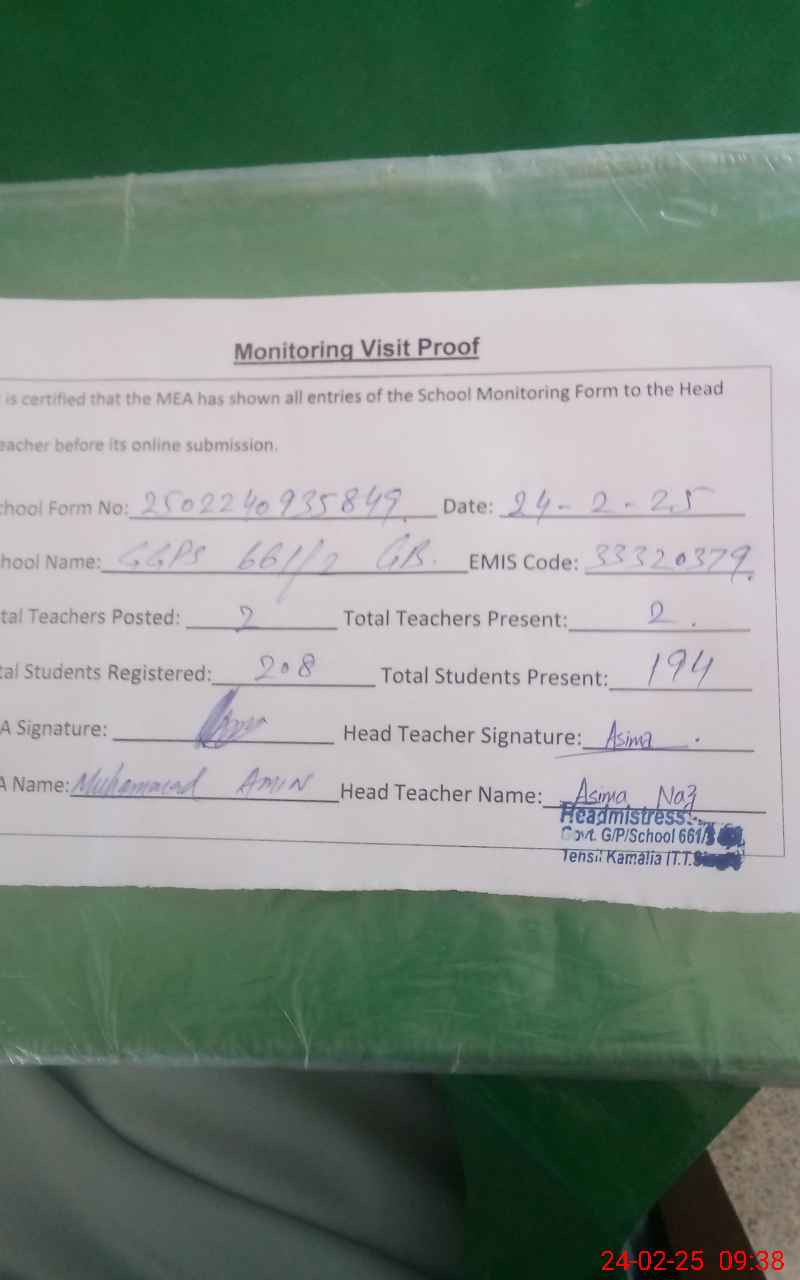 Monitoring Visit Proof
is certified that the MEA has shown all entries of the School Monitoring Form to the Head
eacher before its online submission.
chool Form No: 2502240935849 Date: 24-2-25
hool Name: GGPS 661/2 GB. EMIS Code: 33320379.
tal Teachers Posted: 2 Total Teachers Present: 2.
tal Students Registered: 208 Total Students Present: 194
A Signature: Head Teacher Signature: Asima.
A Name: Muhammad AMIN Head Teacher Name: Asima Naz
Headmistress
Govt. G/P/School 661/
Tehsil Kamalia (T.T.
24-02-25 09:38